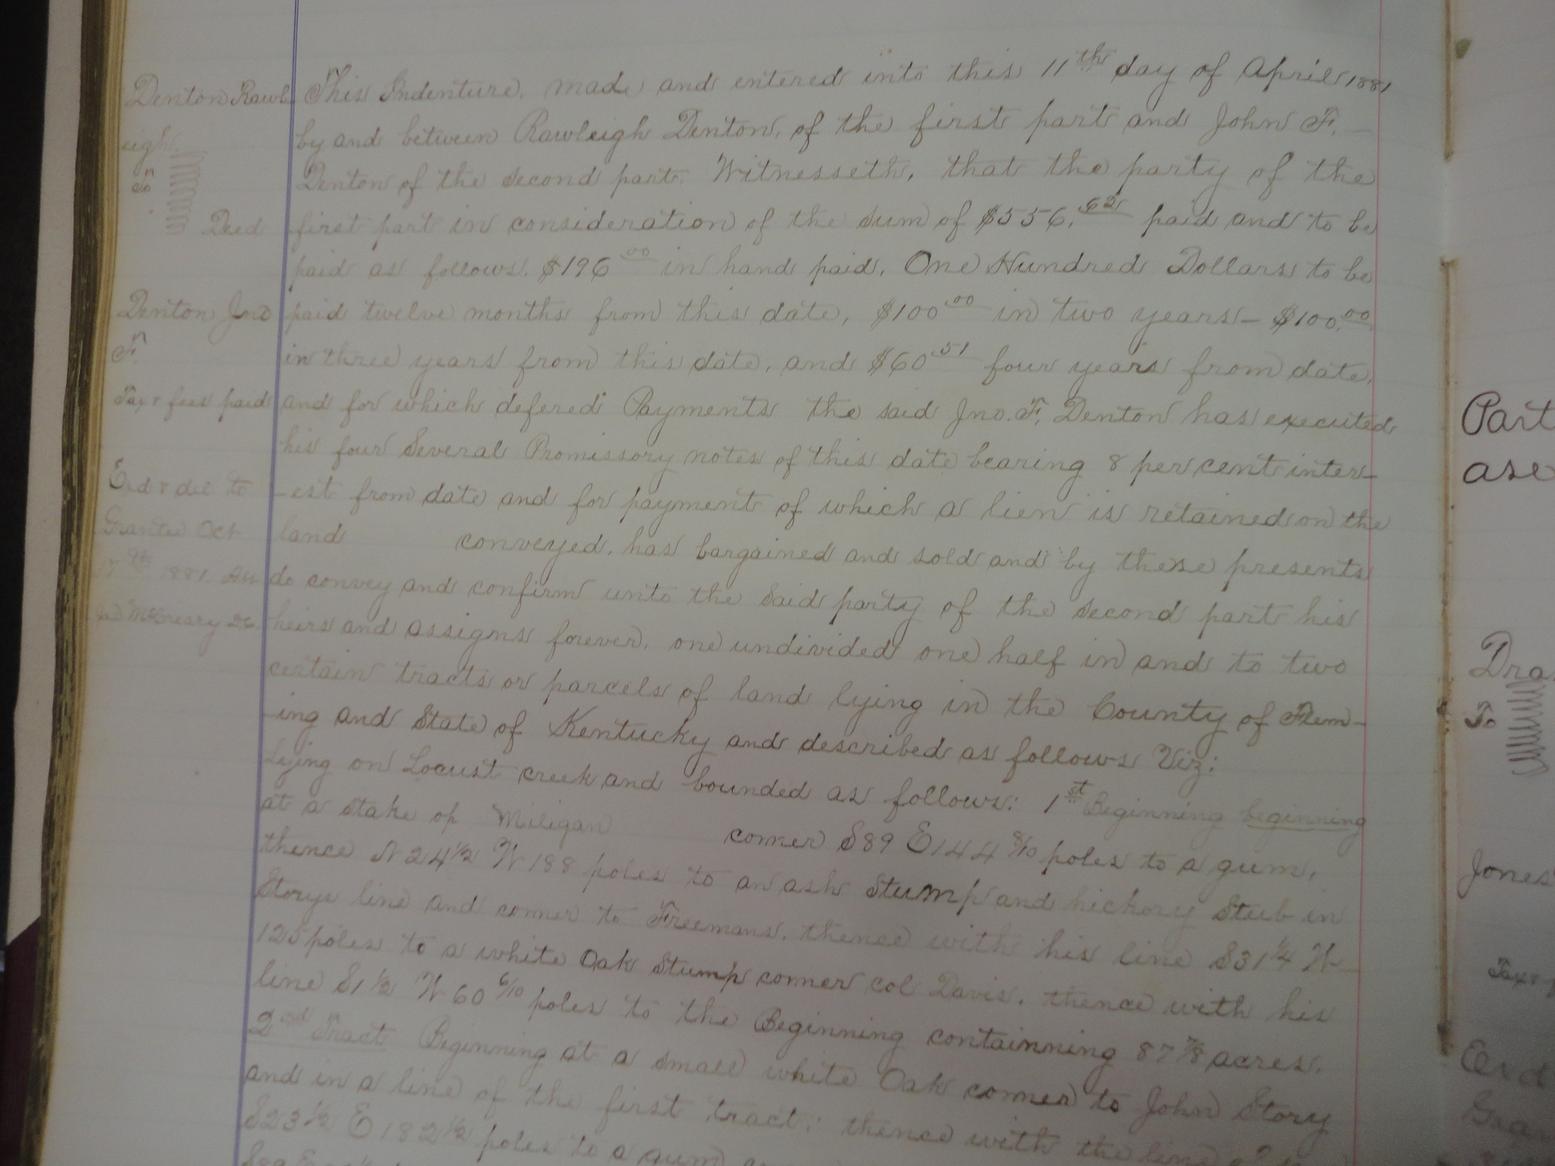 Denton Rawl
eigh
To
Deed
Denton Jno
F.
Tax & fees paid
Exd & del to
Grantee Oct
7th 1881
McCreary
This Indenture, made and entered into this 11th day of April 1881
by and between Rawleigh Denton, of the first part and John F.
Denton of the second part. Witnesseth, that the party of the
first part in consideration of the sum of $556.52 paid and to be
paid as follows. $196 00 in hand paid, One Hundred Dollars to be
paid twelve months from this date, $100 00 in two years – $100.00
in three years from this date, and $60 51 four years from date,
and for which defered Payments the said Jno. F. Denton has executed
his four Several Promissory notes of this date bearing 8 per cent inter–
–est from date and for payment of which a lien is retained on the
land conveyed, has bargained and sold and by these presents
do convey and confirm unto the said party of the second part his
heirs and assigns forever, one undivided one half in and to two
certain tracts or parcels of land lying in the County of Flem–
–ing and State of Kentucky and described as follows Viz:
Lying on Locust creek and bounded as follows: 1st Beginning beginning
at a stake of Miligan corner S89 E144 8/10 poles to a gum,
thence N24½ W188 poles to an ash Stump and hickory Stub in
Storys line and corner to Freemans, thence with his line S31¼ W–
125 poles to a white Oak Stump corner col Davis, thence with his
line S1½ W 60 6/10 poles to the Beginning containning 87⅞ acres.
2nd Tract Beginning at a small white Oak corner to John Story
and in a line of the first tract; thence with the line of
S23½ E182½ poles to a gum
Part
ase
Dra
To
Jones
Tax &
Exd
Gran